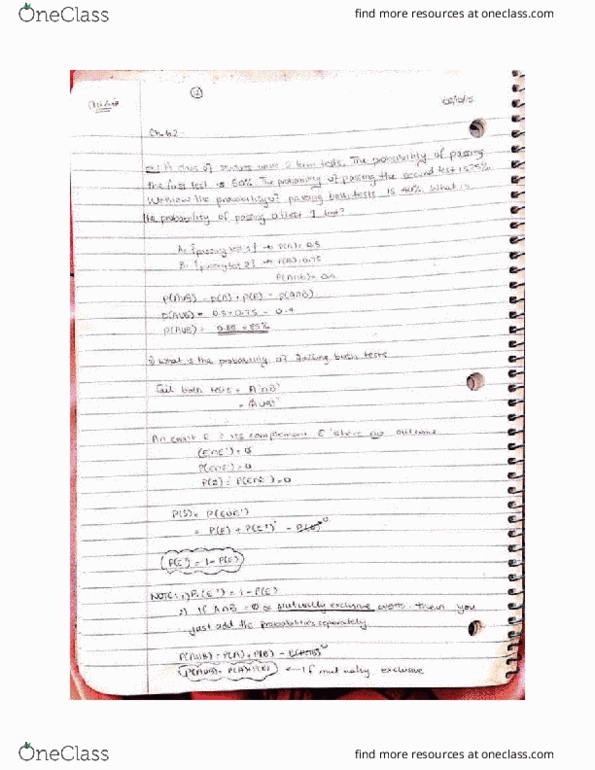 OneClass
find more resources at oneclass.com
2
Ch 6.2
ex: A class of students wrote 2 term tests. The probability of passing
the first test is 50%. The probability of passing the second test is 75%.
We know the probability of passing both tests is 40%. What is
the probability of passing atleast 1 test?
A = {passing test 1} → P(A) = 0.5
B = {passing test 2} → P(B) = 0.75
P(A∩B) = 0.4
P(AUB) = P(A) + P(B) - P(A∩B)
P(AUB) = 0.5 + 0.75 - 0.4
P(AUB) = 0.85 = 85%
What is the probability of failing both tests
Fail both tests = A'∩B'
= AUB'
An event E & its complement E' share no outcome
(E∩E') = Ø
P(E∩E') = 0
P(Ø) = P(E∩E') = 0
P(S) = P(EUE')
= P(E) + P(E') - P(Ø) 0
P(E') = 1 - P(E)
NOTE: 1) P(E') = 1 - P(E)
2) If A∩B = Ø mutually exclusive events then you
just add the probabilities seperately.
P(AUB) = P(A) + P(B) - P(A∩B) 0
P(AUB) = P(A) + P(B) ← If mutually exclusive
OneClass
find more resources at oneclass.com